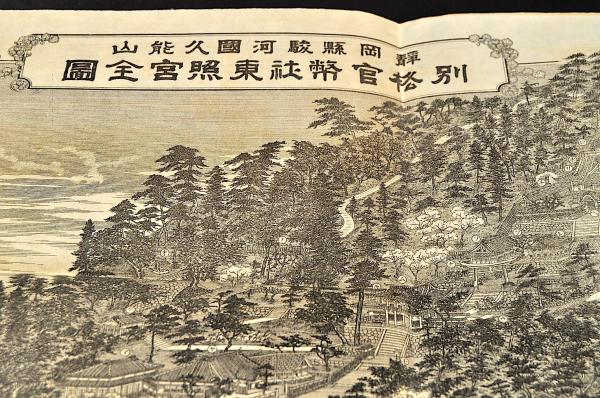 靜岡縣駿河國久能山
別格官幣社東照宮全圖